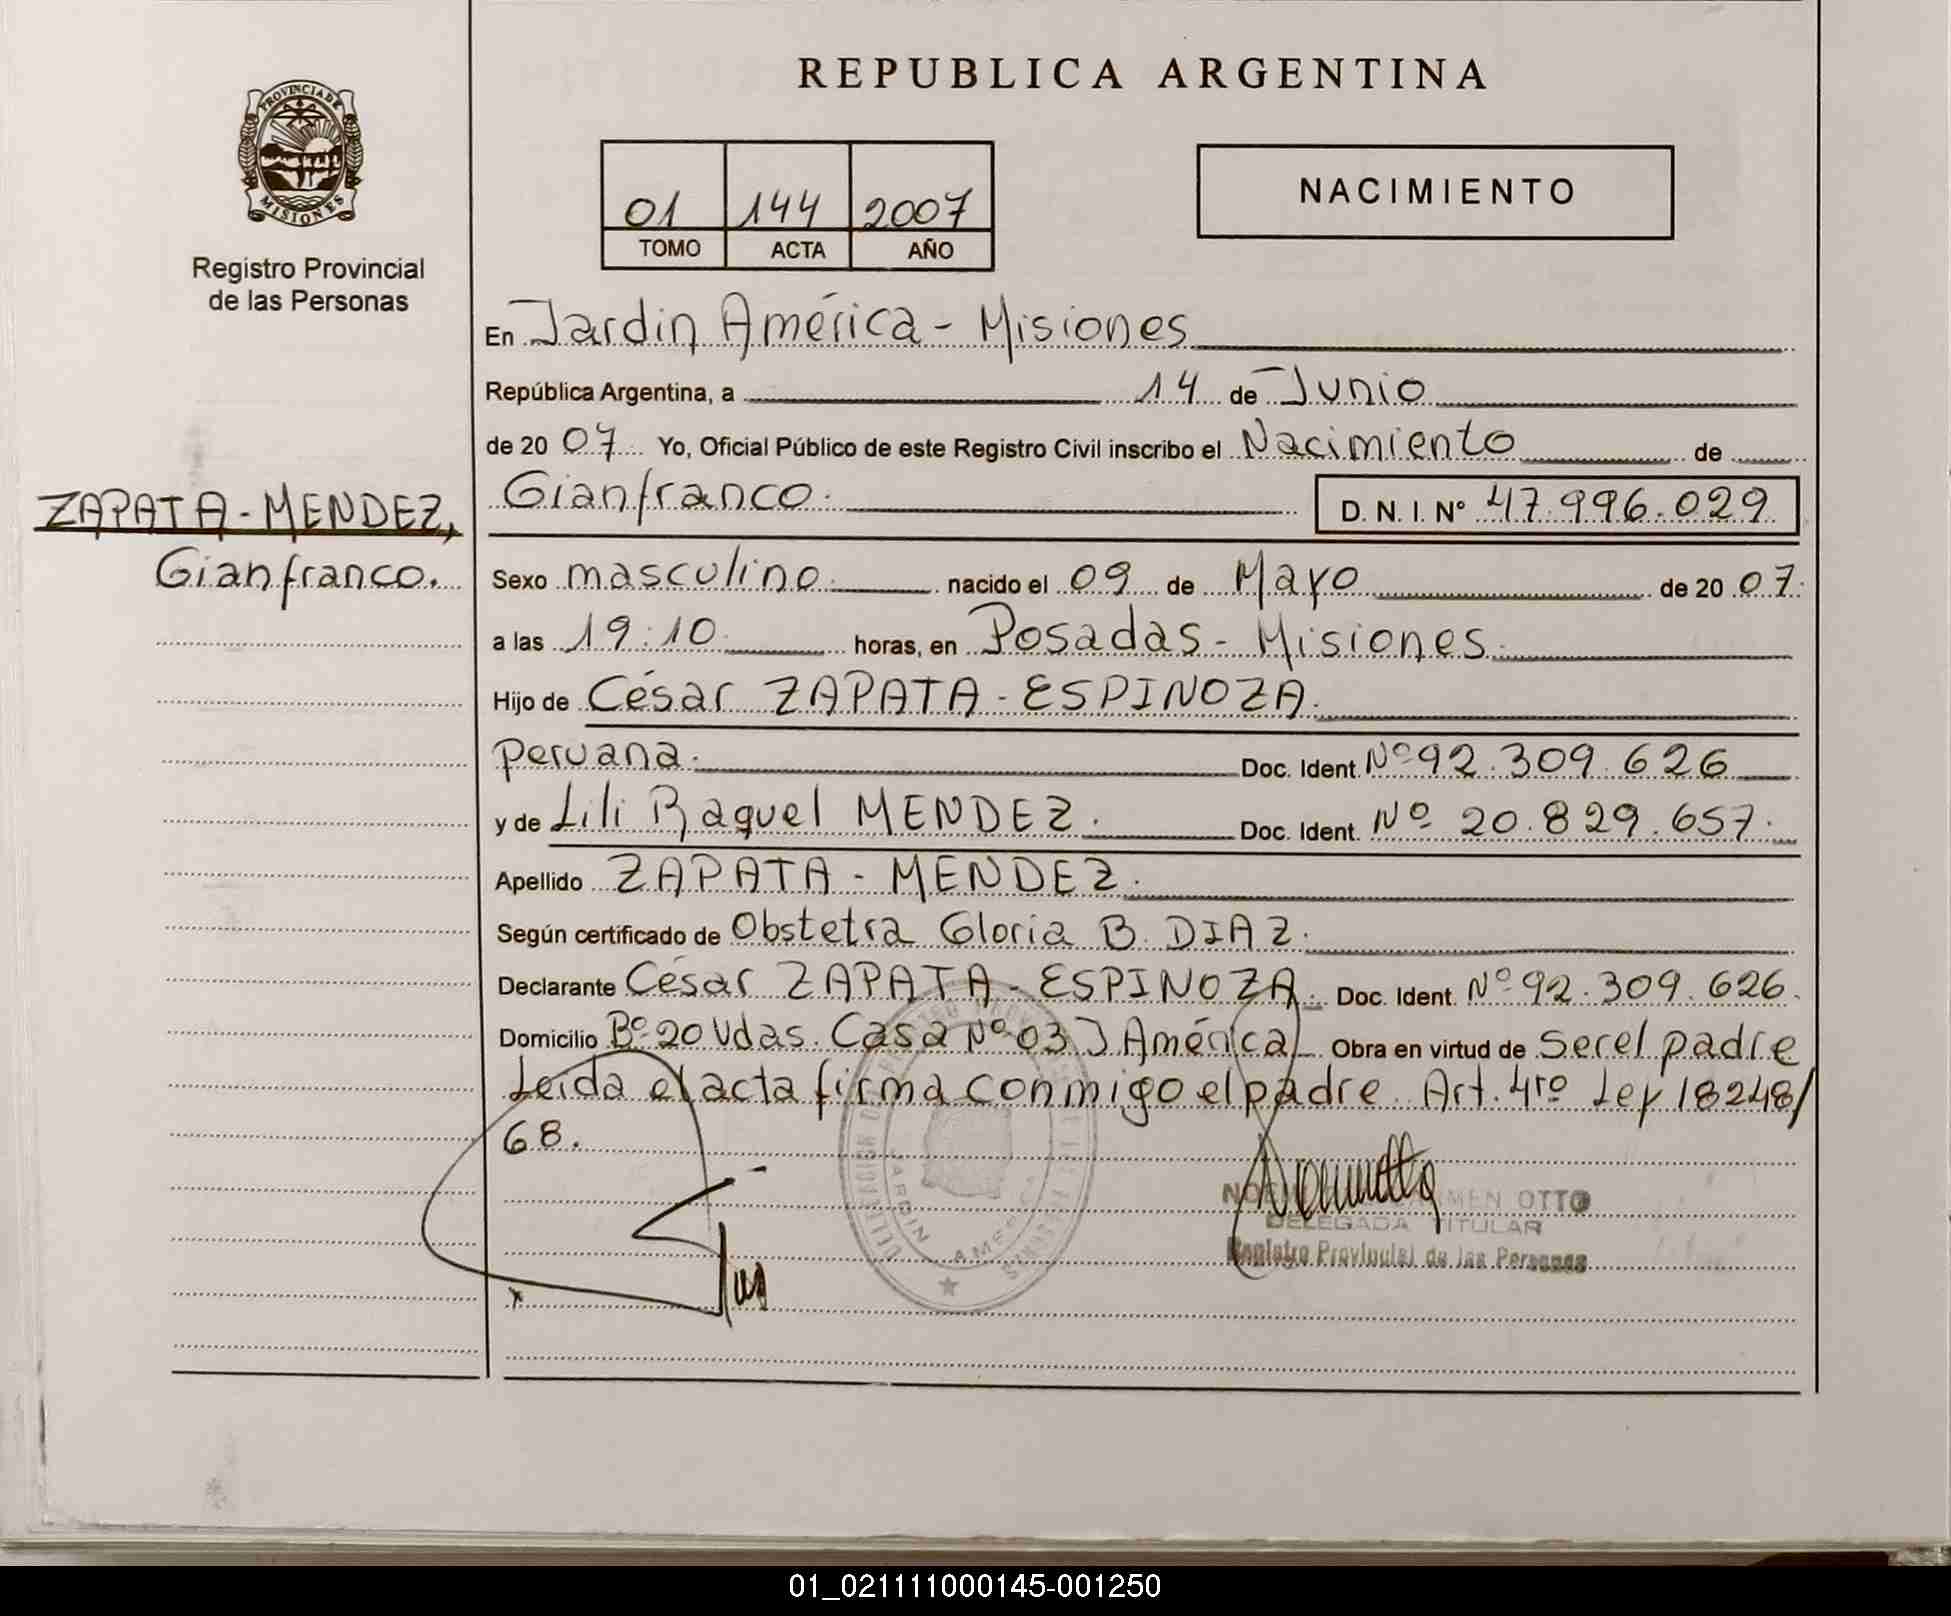 REPUBLICA ARGENTINA
PROVINCIA DE
MISIONES
Registro Provincial
de las Personas
01 144 2007
TOMO ACTA AÑO
NACIMIENTO
En Jardin América - Misiones
República Argentina, a 14 de Junio
de 20 07 Yo, Oficial Público de este Registro Civil inscribo el Nacimiento de
ZAPATA - MENDEZ,
Gianfranco.
Gianfranco. D. N. I. Nº 47.996.029
Sexo masculino. nacido el 09 de Mayo de 20 07.
a las 19:10. horas, en Posadas - Misiones.
Hijo de César ZAPATA - ESPINOZA.
peruana. Doc. Ident. Nº 92.309.626
y de Lili Raquel MENDEZ. Doc. Ident. Nº 20.829.657.
Apellido ZAPATA - MENDEZ.
Según certificado de Obstetra Gloria B. DIAZ.
Declarante César ZAPATA - ESPINOZA. Doc. Ident. Nº 92.309.626.
Domicilio Bº 20 Vdas. Casa Nº 03 J América Obra en virtud de Ser el padre
Leida el acta firma conmigo el padre. Art. 4ro Ley 18248/
68.
JARDIN AMERICA
OTTO
DELEGADA TITULAR
Registro Provincial de las Personas
01_021111000145-001250